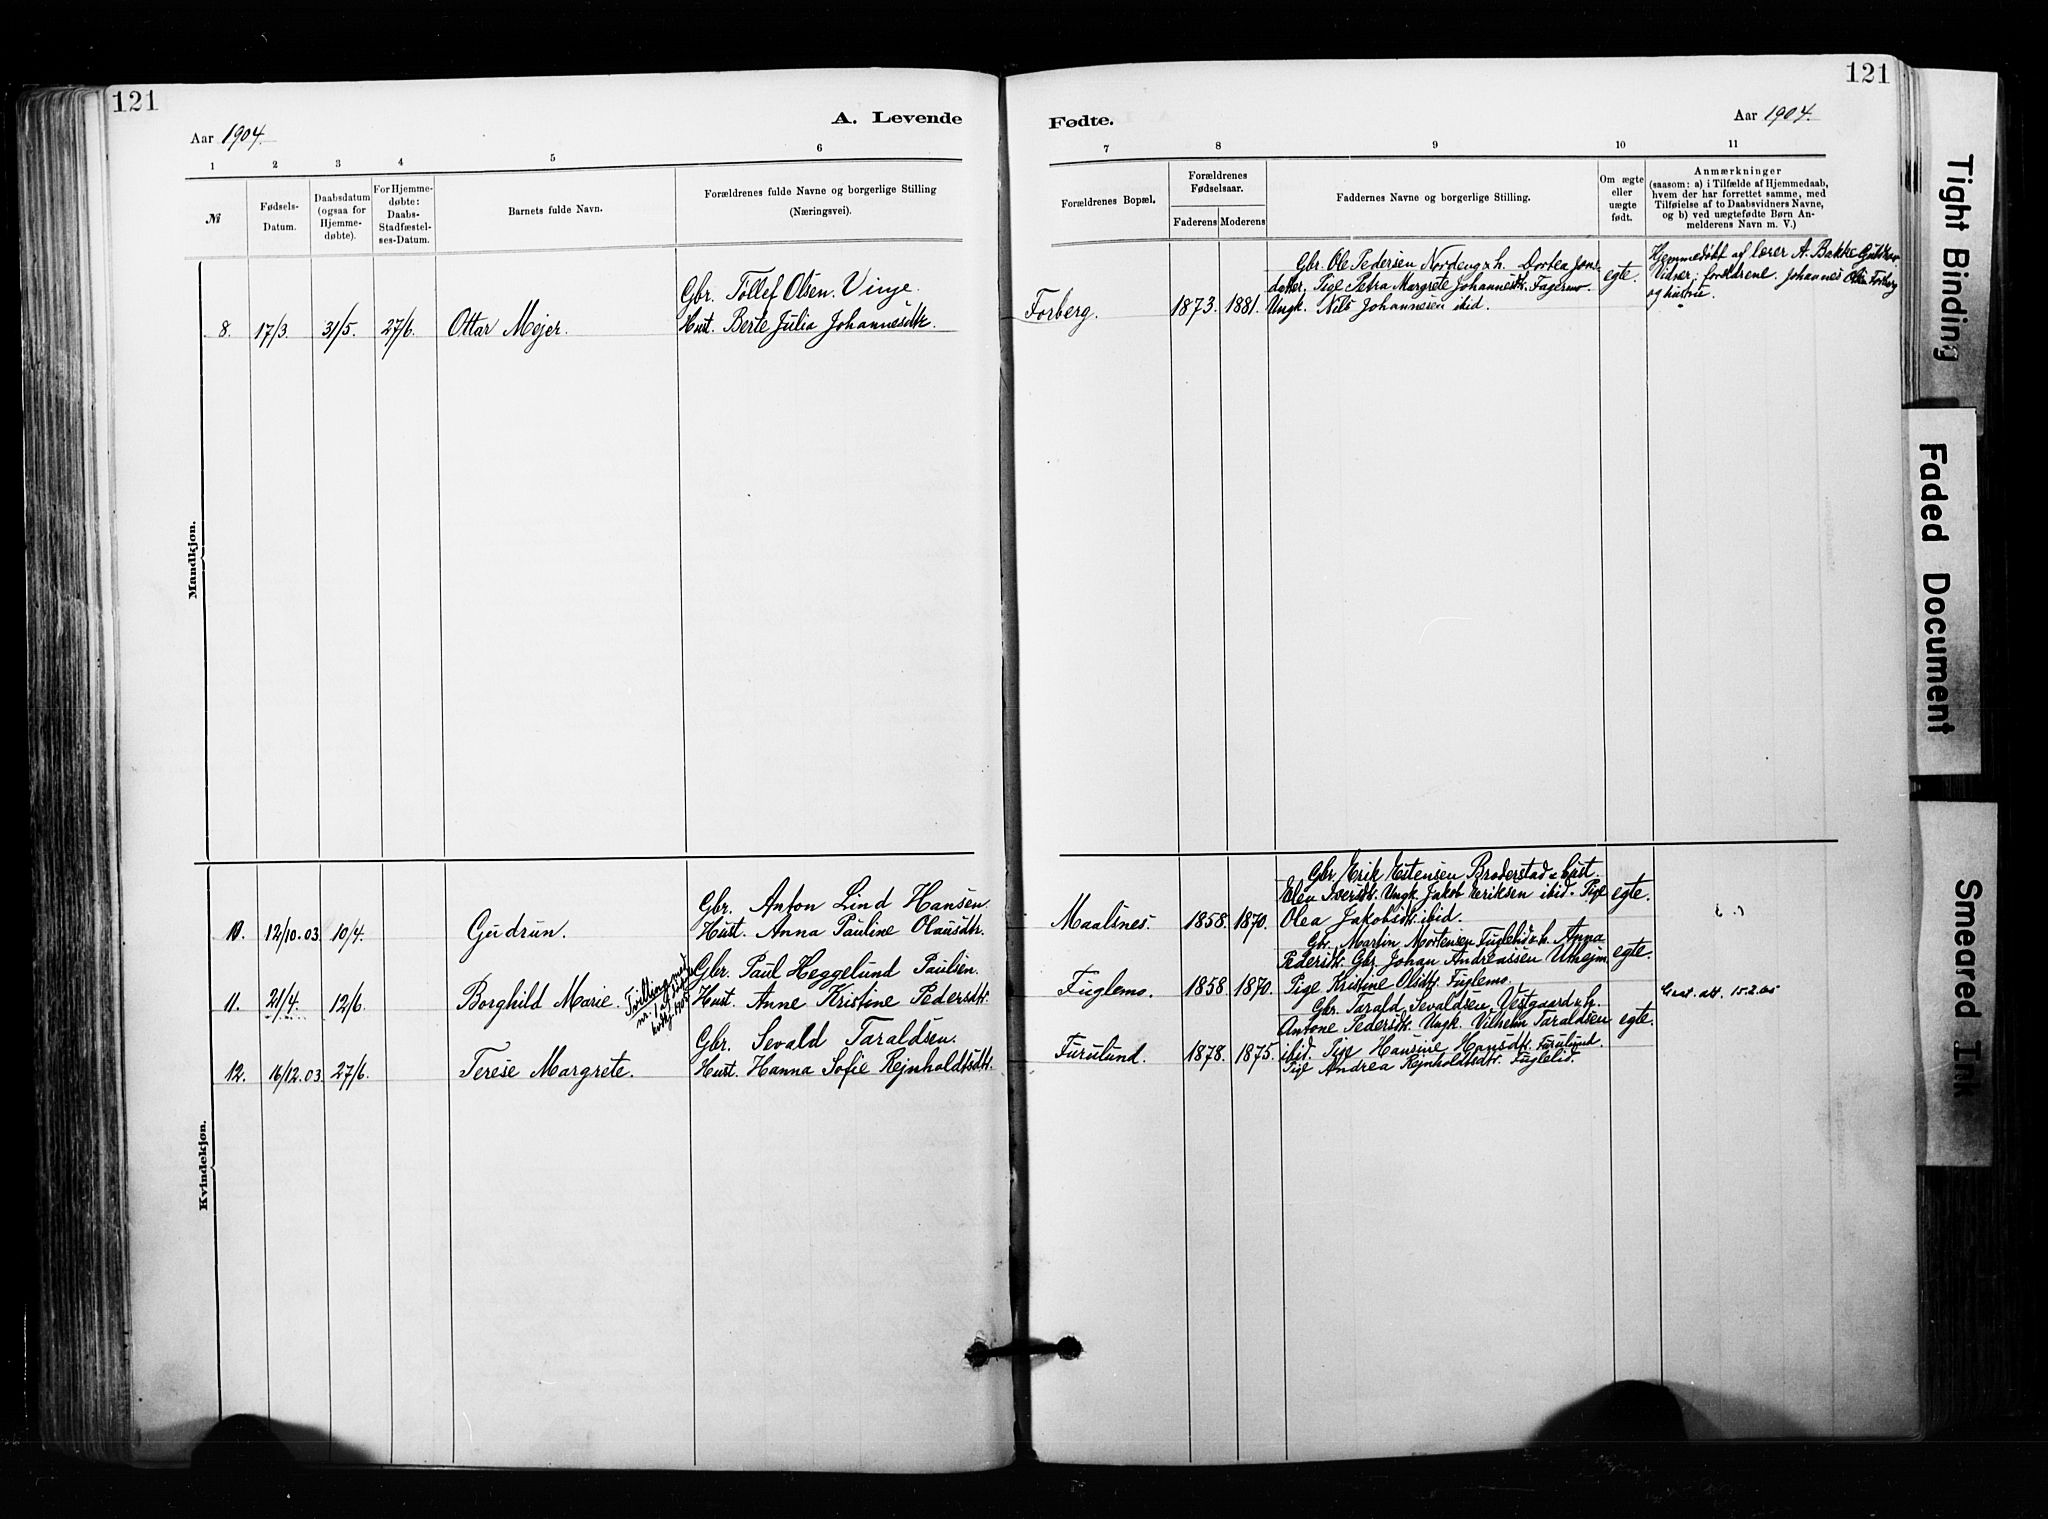 121
Aar 1904.
A. Levende
1 2 3 4 5 6
№
Fødsels-Datum.
Daabsdatum (ogsaa for Hjemme-døbte).
For Hjemme-døbte: Daabs-Stadfæstel-ses-Datum.
Barnets fulde Navn.
Forældrenes fulde Navne og borgerlige Stilling (Næringsvei).
Mandkjøn.
Gbr. Tollef Olsen. Vinje.
8. 17/3. 31/5. 27/6. Ottar Mejer. Hust. Berte Julia Johannesdtr.
Kvindekjøn.
Gbr. Anton Lind Hansen.
10. 12/10.03. 10/4. Gudrun. Hust. Anna Pauline Olausdtr.
Gbr. Paul Heggelund Paulsen.
11. 21/4. 12/6. Borghild Marie. Tvilling med nr. 1 Hust. Anne Kristine Pedersdtr.
Gbr. Sevald Taraldsen.
12. 16/12.03. 27/6. Terese Margrete. Hust. Hanna Sofie Rejnholdtsdtr.
121
Fødte.
Aar 1904.
7 8 9 10 11
Forældrenes Bopæl.
Forældrenes Fødselsaar.
Faderens Moderens
Faddernes Navne og borgerlige Stilling.
Om ægte eller uægte født.
Anmærkninger
(saasom: a) i Tilfælde af Hjemmedaab,
hvem der har forrettet samme, med
Tilføielse af to Daabsvidners Navne,
og b) ved uægtefødte Børn An-
melderens Navn m. V.)
Gbr. Ole Pedersen Nordeng & h. Dortea Jons-
dotter. Pige Petra Margrete Johannesdtr. Fagermo.
Forberg. 1873. 1881. Ungk. Nils Johannesen ibid. egte.
Hjemmedøbt af lærer A. Bakke
Vidner: forældrene. Johannes Forberg
og hustru.
Gbr. Erik Estensen Broderstad & hust.
Elen Iversdtr. Ungk. Jakob Eriksen ibid. Pige egte.
Maalsnes. 1858. 1870. Olea Jakobsdtr. ibid.
Gbr. Martin Mortensen Fuglelid & h. Anna
Pedersdtr. Gbr. Johan Andreassen Utheim. egte.
Fuglemo. 1858 1870. Pige Kristine Olsdtr. Fuglemo.
att. 15.2.05
Gbr. Tarald Sevaldsen Vestgaard & h.
Antone Pedersdtr. Ungk. Vilhelm Taraldsen egte.
Furulund. 1878. 1875. ibid. Pige Hansine Hansdtr. Furulund.
Pige Andrea Rejnholdtsdtr. Fuglelid.
Tight Binding
Faded Document
Smeared Ink